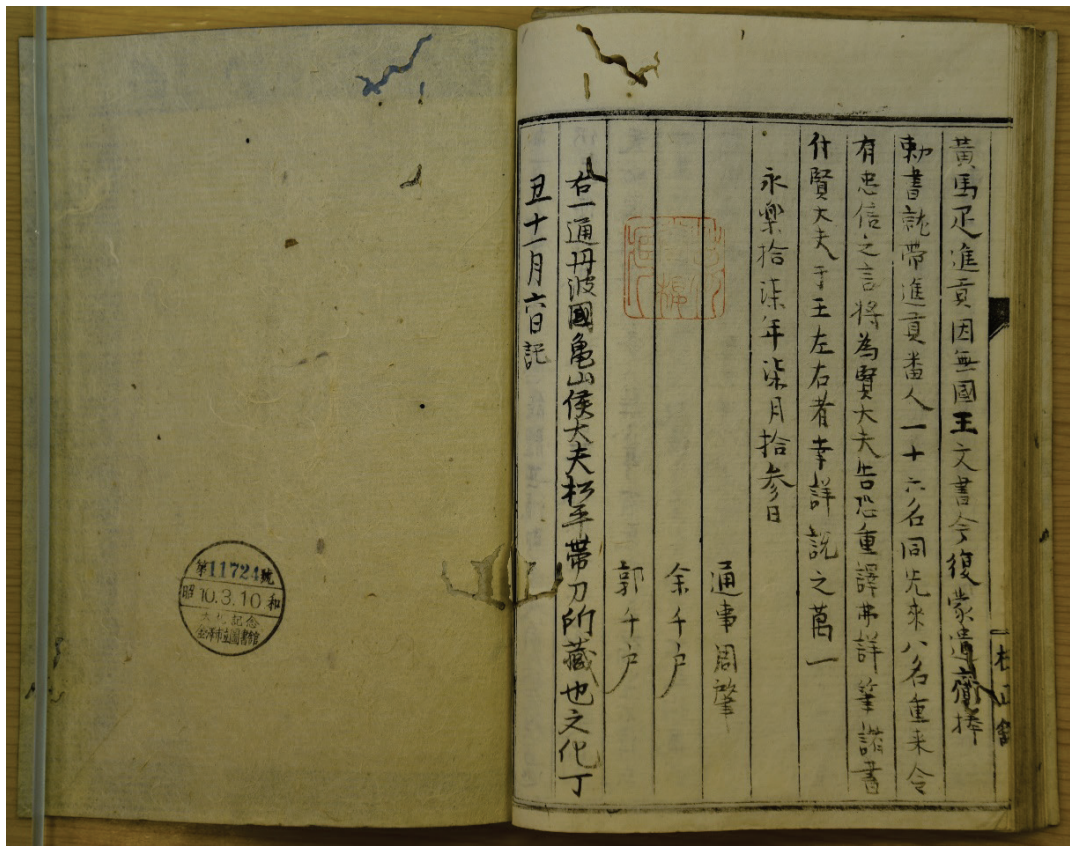 黃馬疋進貢因無國王文書今復蒙遣齎捧
勅書就帶進貢番人一十六名同先來八名重來令
有忠信之言將為賢大夫告恐重譯弗詳筆諸書
什賢大夫于王左右者幸詳說之萬一
永樂拾柒年柒月拾参日
通事周肇
余千戶
郭千戶
右一通丹波國亀山侯大夫松平帯刀所藏也文化丁
丑十一月六日記
第11724號
昭和
10.3.10
記念
金澤市立圖書館